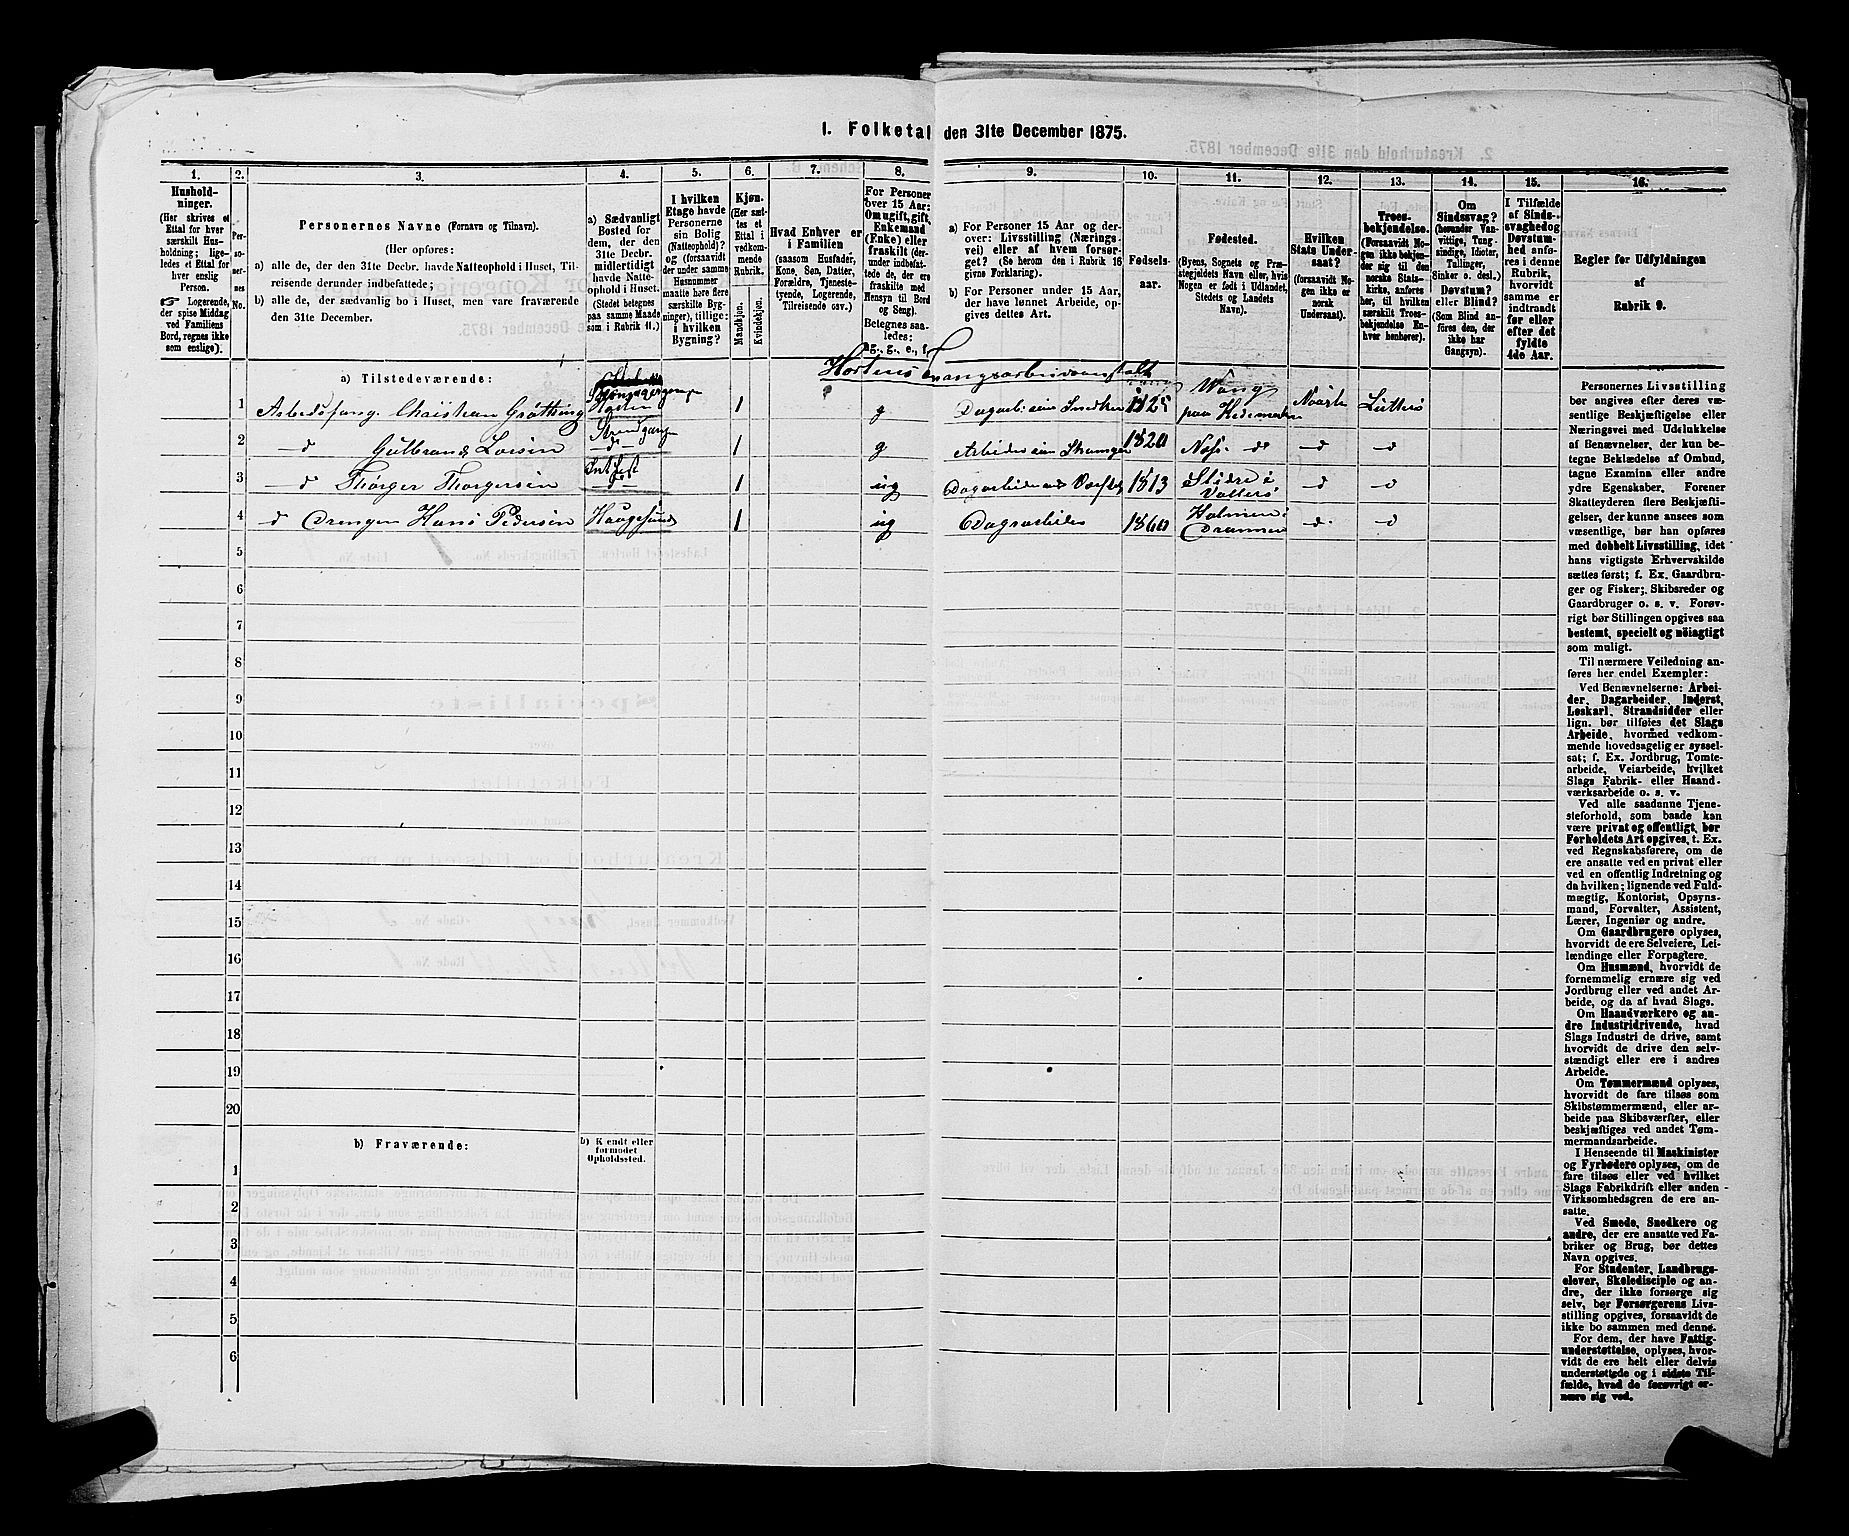 1. Folketal den 31te December 1875.
1.
Hushold-
ninger.
(Her skrives et
Ettal for hver
særskilt Hus-
holdning; lige-
ledes et Ettal for
hver enslig
Person.
☞ Logerende,
der spise Middag
ved Familiens
Bord, regnes ikke
som enslige).
2.
Per-
so-
ner-
nes
No.
3.
Personernes Navne (Fornavn og Tilnavn).
(Her opføres:
a) alle de, der den 31te Decbr. havde Natteophold i Huset, Til-
reisende derunder indbefattede;
b) alle de, der sædvanlig bo i Huset, men vare fraværende
den 31te December.
4.
a) Sædvanligt
Bosted for
dem, der den
31te Decbr.
midlertidigt
havde Natte-
ophold i Huset.
(Stedet betegnes
paa samme Maade
som i Rubrik 11.)
5.
I hvilken
Etage havde
Personerne
sin Bolig
(Natteophold)?
og (forsaavidt
der under samme
Husnummer
maatte høre flere
særskilte Byg-
ninger), tillige:
i hvilken
Bygning?
6.
Kjøn.
(Her sæt-
tes et
Ettal i
vedkom-
mende
Rubrik.
Mandkjøn.
Kvindekjøn.
7.
Hvad Enhver er
i Familien
(saasom Husfader,
Kone, Søn, Datter,
Forældre, Tjeneste-
tyende, Logerende,
Tilreisende osv.)
8.
For Personer
over 15 Aar:
Om ugift, gift,
Enkemand
(Enke) eller
fraskilt (der-
under indbefat-
tede de, der ere
fraskilte med
Hensyn til Bord
og Seng).
Betegnes saa-
ledes:
ug., g., e., f.
9.
a) For Personer 15 Aar og der-
over: Livsstilling (Nærings-
vei) eller af hvem forsør-
get? (Se herom den i Rubrik 16
givne Forklaring).
b) For Personer under 15 Aar,
der have lønnet Arbeide, op-
gives dettes Art.
10.
Fødsels-
aar.
11.
Fødested.
(Byens, Sognets og Præ-
stegjeldets Navn eller, hvis
Nogen er født i Udlandet,
Stedets og Landets
Navn).
12.
Hvilken
Stats Under-
saat?
(forsaavidt No-
gen ikke er
norsk
Undersaat).
13.
Troes-
bekjendelse.
(Forsaavidt No-
gen ikke bekjen-
der sig til den
norske Stats-
kirke, anføres
her, til hvilken
særskilt Troes-
bekjendelse En-
hver henhører).
14.
Om
Sindssvag?
(herunder Van-
vittige, Tung-
sindige, Idioter,
Tullinger,
Sinker o. desl.)
Døvstum?
eller Blind?
(Som Blind an-
føres den, der
ikke har
Gangsyn).
15.
I Tilfælde
af Sinds-
svaghed og
Døvstum-
hed anfø-
res i denne
Rubrik,
hvorvidt
samme er
indtraadt
før eller
efter det
fyldte
4de Aar.
16.
Regler for Udfyldningen
af
Rubrik 9.
a) Tilstedeværende:
Hortens Tvangsarbeidsanstalt
1 Arbeidsfang. Christian Grøthing Horten 1 g Dagarbeider Snedker 1825 Wang paa Hedemarken Norsk Luthers
2 — d Gulbrand Larsen Strandgangen — d — 1 g 1820 Næs — d — d — d
3 — d Thorger Thorgersen — d — 1 ug 1813 Slidre i Valders — d — d
4 — d Drengen Hans Pedersen Haugesund 1 ug Dagarbeider 1860 Holmen i Drammen — d — d
5
6
7
8
9
10
11
12
13
14
15
16
17
18
19
20
b) Fraværende:
b) Kendt eller
formodet
Opholdssted.
1
2
3
4
5
6
Personernes Livsstilling
bør angives efter deres væ-
sentlige Beskjæftigelse eller
Næringsvei med Udelukkelse
af Benævnelser, der kun be-
tegne Beklædelse af Ombud,
tagne Examina eller andre
ydre Egenskaber. Forener
Skatteyderen flere Beskjæfti-
gelser, der kunne ansees som
væsentlige, bør han opføres
med dobbelt Livsstilling, idet
hans vigtigste Erhvervskilde
sættes først; f. Ex. Gaardbru-
ger og Fisker; Skibsreder og
Gaardbruger o. s. v. Forøv-
rigt bør Stillingen opgives saa
bestemt, specielt og nöiagtigt
som muligt.
Til nærmere Veiledning an-
føres her endel Exempler:
Ved Benævnelserne: Arbei-
der, Dagarbeider, Inderst,
Løskarl, Strandsidder eller
lign. bør tilføtes det Slags
Arbeide, hvormed vedkom-
mende hovedsagelig er syssel-
sat; f. Ex. Jordbrug, Tomte-
arbeide, Veiarbeide, hvilket
Slags Fabrik- eller Haand-
værksarbeide o. s. v.
Ved alle saadanne Tjene-
steforhold, som baade kan
være privat og offentligt, bør
Forholdets Art opgives, t. Ex.
ved Regnskabsførere, om de
ere ansatte ved en privat eller
ved en offentlig Indretning og
da hvilken; lignende ved Fuld-
mægtig, Kontorist, Opsyns-
mand, Forvalter, Assistent,
Lærer, Ingeniør og andre.
Om Gaardbrugere oplyses,
hvorvidt de ere Selveiere, Lei-
lændinge eller Forpagtere.
Om Husmænd, hvorvidt de
fornemmelig ernære sig ved
Jordbrug eller ved andet Ar-
beide, og da af hvad Slags.
Om Haandværkere og an-
dre Industridrivende, hvad
Slags Industri de drive, samt
hvorvidt de drive den selv-
stændigt eller ere i andres
Arbeide.
Om Tømmermænd oplyses,
hvorvidt de fare tilsøs som
Skibstømmermænd, eller ar-
beide paa Skibsværfter, eller
beskjæftiges ved andet Tøm-
mermandsarbeide.
I Henseende til Maskinister
og Fyrbødere oplyses, om de
fare tilsøs eller ved hvilket
Slags Fabrikdrift eller anden
Virksomhedsgren de ere an-
satte.
Ved Smede, Snedkere og
andre, der ere ansatte ved Fa-
briker og Brug, bør dettes
Navn opgives.
For Studenter, Landbrugs-
elever, Skoledisciple og an-
dre, der ikke forsørge sig
selv, bør Forsørgerens Livs-
stilling opgives, forsaavidt de
ikke bo sammen med denne.
For dem, der have Fattig-
understøttelse, oplyses, hvor-
vidt de ere helt eller delvis
understøttede og i sidste Til-
fælde, hvad de forøvrigt er-
nære sig ved.